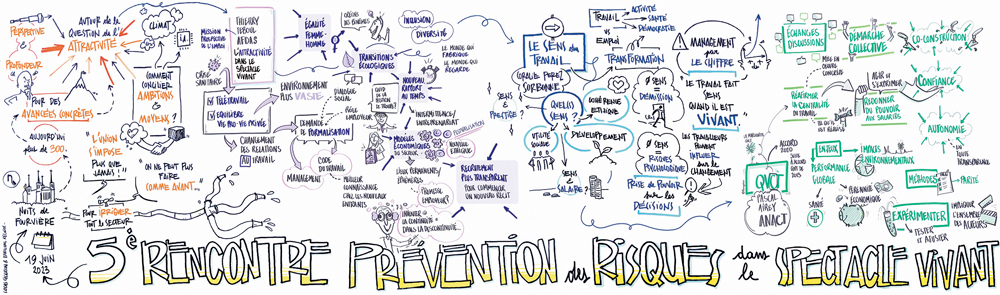 PERSPECTIVE
&
PROFONDEUR
AUTOUR de la
QUESTION de l'
ATTRACTIVITÉ
CLIMAT
I.A.
POUR DES
AVANCÉES CONCRÈTES
COMMENT
CONCILIER
AMBITIONS
&
MOYENS ?
AUJOURD'HUI
plus de 300.
"L'UNION
S'IMPOSE
PLUS QUE
JAMAIS !"
ON NE PEUT PLUS
FAIRE
COMME AVANT...
POUR IRRIGUER
TOUT le SECTEUR
NUITS de
FOURVIÈRE
19 JUIN
2023
MISSION
PROSPECTIVE
DE L'EMPLOI
THIERRY
TEBOUL
AFDAS
L'ATTRACTIVITÉ
DANS LE
SPECTACLE
VIVANT
CRISE
SANITAIRE
TÉLÉTRAVAIL
ÉQUILIBRE
VIE PRO-VIE PRIVÉE
CHANGEMENT
DES RELATIONS
AU TRAVAIL
ENVIRONNEMENT
PLUS
VASTE
DEMANDE de
FORMALISATION
DIALOGUE
SOCIAL
CODE du
TRAVAIL
MANAGEMENT
ÉGALITÉ
FEMME-
HOMME
TRANSITIONS
ÉCOLOGIQUES
INCLUSION
DIVERSITÉ
LE MONDE QUI
FABRIQUE
LE MONDE QUI
REGARDE
NOUVEAU
RAPPORT
AU TEMPS
RÔLE
EMPLOYEUR
INTERMITTENCE/
ENTREPRENARIAT
MODÈLES
ÉCONOMIQUES
DU SECTEUR
MEILLEURE
CONNAISSANCE
CHEZ LES NOUVEAUX
ENTRANTS
LIEUX PERMANENTS/
ÉPHÉMÈRES
PROMESSE
EMPLOYEURS
LA CONTINUITÉ
DANS LA DISCONTINUITÉ
RECRUTEMENT
PLUS TRANSPARENT
POUR COMMENCER
UN NOUVEAU RÉCIT
LE SENS du
TRAVAIL
CORALIE PEREZ
SORBONNE
SENS
&
PRESTIGE ?
QUEL(S)
SENS ?
UTILITÉ
SOCIALE
COHÉRENCE
ÉTHIQUE
DÉVELOPPEMENT
SENS
&
SALAIRE ?
TRAVAIL
VS
EMPLOI
ACTIVITÉ
SANTÉ
DÉMOCRATIE
TRANSFORMATION
Ø SENS
=
DÉMISSION
Ø SENS
=
RISQUES
PSYCHOLOGIQUES
PRISE de POUVOIR
sur les
DÉCISIONS
"MANAGEMENT
par
LE CHIFFRE"
"LE TRAVAIL FAIT
SENS
QUAND IL EST
VIVANT."
LES TRAVAILLEURS
PEUVENT
INFLUER
sur le
CHANGEMENT
ÉCHANGES
DISCUSSIONS
DÉMARCHE
COLLECTIVE
CO-CONSTRUCTION
MISE EN
DÉBAT
CONCRÈTE
RÉAFFIRMER
LA CENTRALITÉ
du TRAVAIL
AGIR et
S'EXPRIMER
REDONNER
DU POUVOIR
AUX SALARIÉS
CONFIANCE
AUTONOMIE
EN TOUTE
TRANSPARENCE
QVCT
PASCALE
ANACT
ENJEUX
PERFORMANCE
GLOBALE
IMPACTS
ENVIRONNEMENTAUX
SANTÉ
PÉRENNITÉ
ÉCONOMIQUE
MÉTHODES
PARITÉ
EXPÉRIMENTER
TESTER et
AJUSTER
IMPLIQUER
L'ENSEMBLE
DES ACTEURS
5e RENCONTRE PRÉVENTION des RISQUES dans le SPECTACLE VIVANT